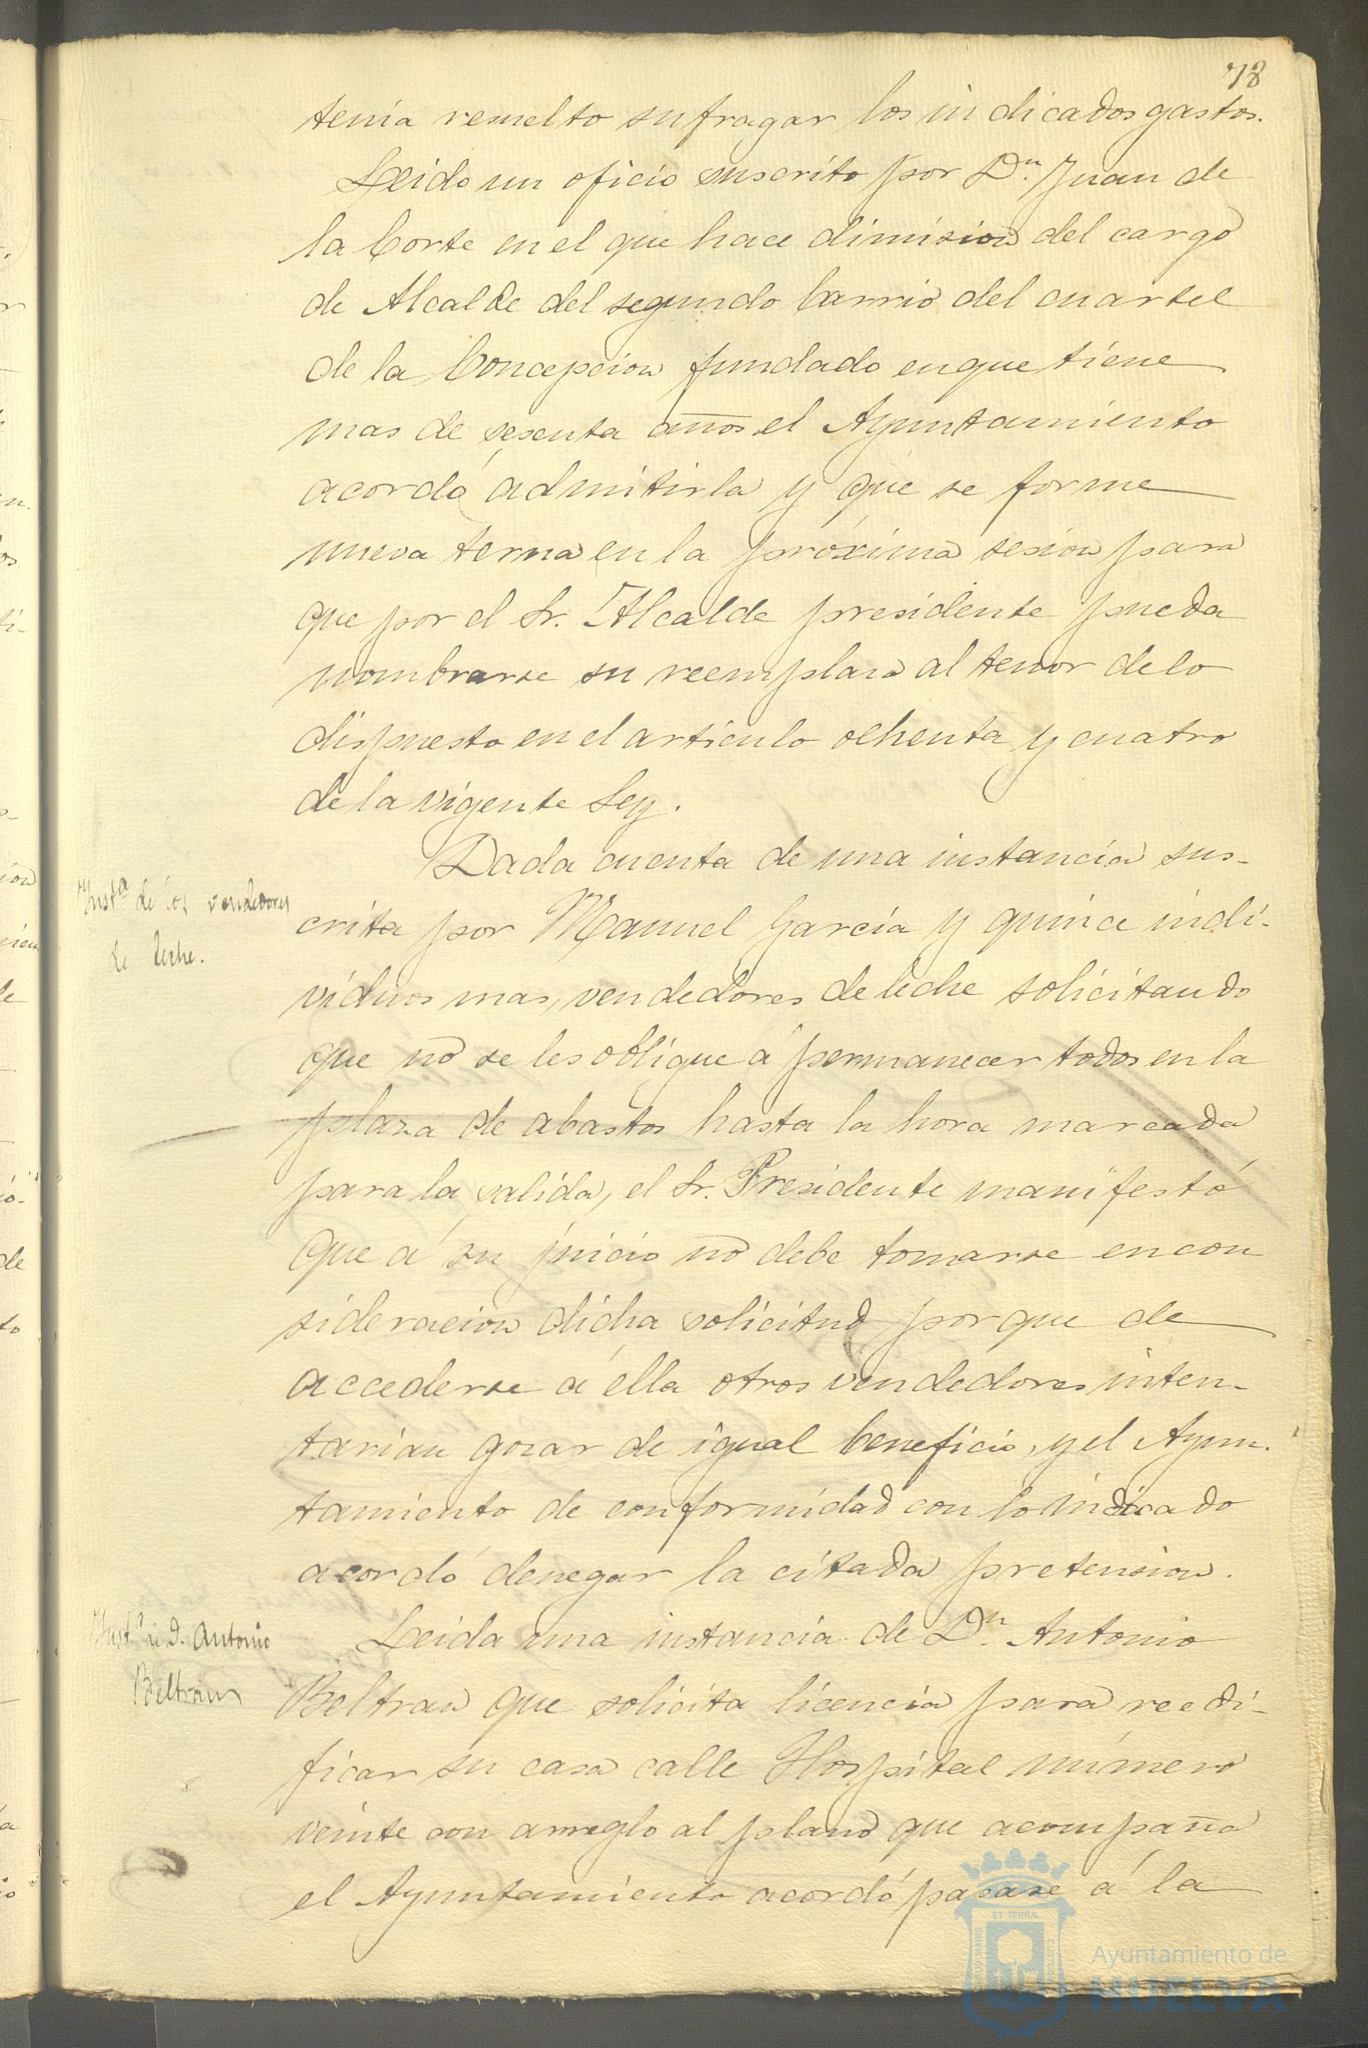 78
tenia resuelto sufragar los indicados gastos.
Leido un oficio suscrito por Dn. Juan de
la Corte en el que hace dimision del cargo
de Alcalde del segundo barrio del cuartel
de la Concepcion fundado en que tiene
mas de sesenta años el Ayuntamiento
acordó admitirla y que se forme
nueva terna en la próxima sesion para
que por el Sr. Alcalde presidente pueda
nombrarse su reemplazo al tenor de lo
dispuesto en el articulo ochenta y cuatro
de la vigente Ley.
Dada cuenta de una instancia sus-
Insta. de los vendedores
de leche.
crita por Manuel Garcia y quince indi-
viduos mas, vendedores de leche solicitando
que no se les obligue á permanecer todos en la
plaza de abastos hasta la hora marcada
para la salida, el Sr. Presidente manifestó
que á su juicio no debe tomarse en con
sideracion dicha solicitud porque de
accederse á ella otros vendedores inten-
tarian gozar de igual beneficio, y el Ayun-
tamiento de conformidad con lo indicado
acordó denegar la citada pretension.
Insta. de D. Antonio
Beltran
Leida una instancia de Dn. Antonio
Beltran que solicita licencia para reedi-
ficar su casa calle Hospital número
veinte con arreglo al plano que acompaña
el Ayuntamiento acordó pasase á la
Ayuntamiento de
HUELVA